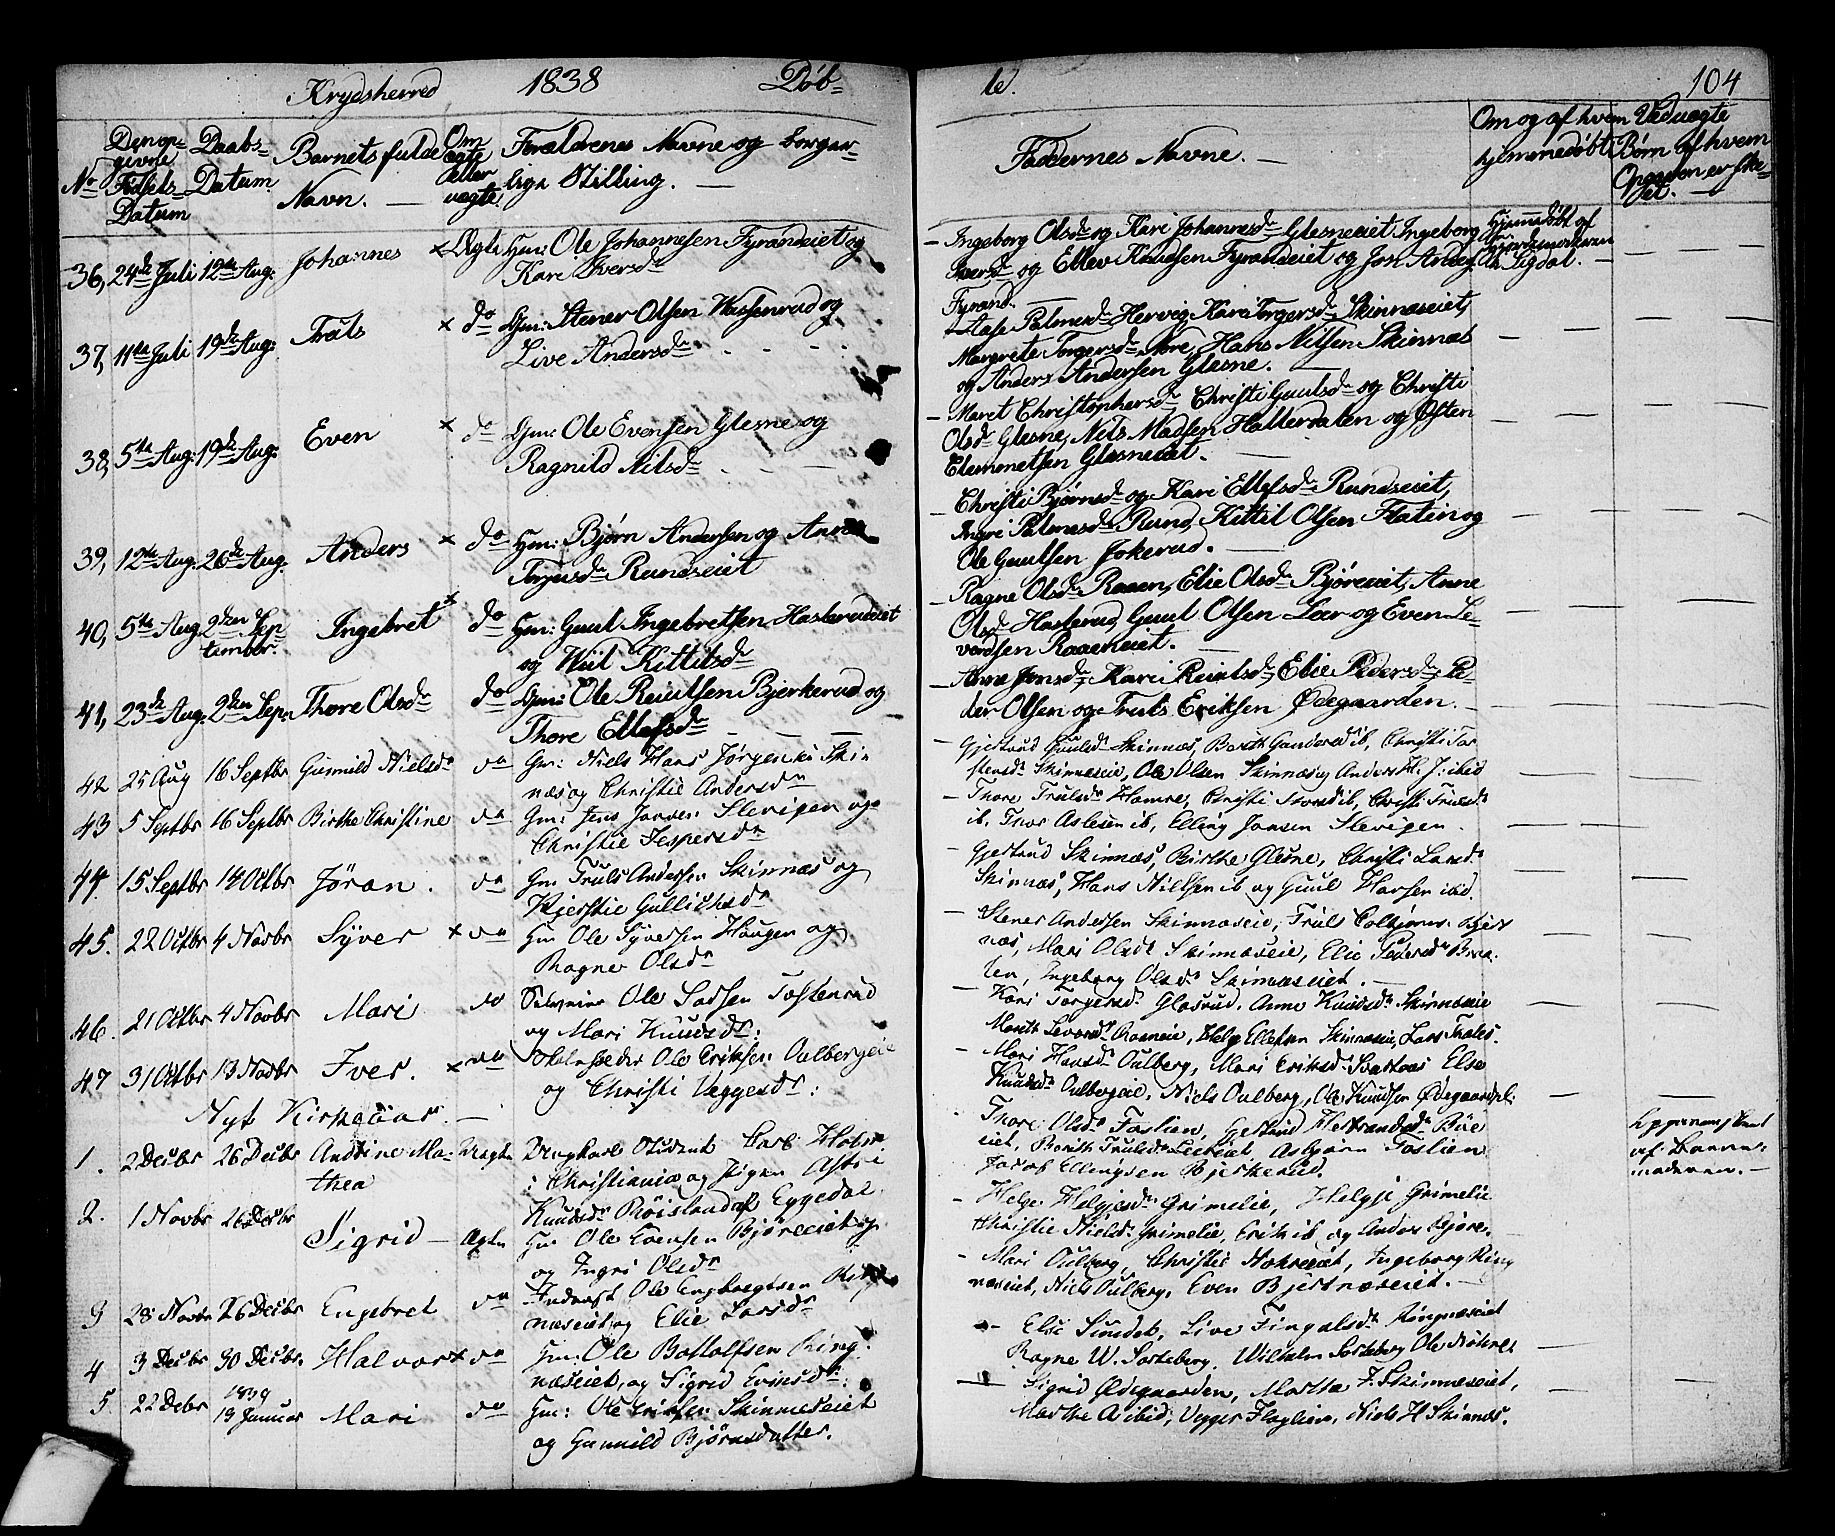 Krydsherred 1838 Døb-
No Den opgivne Fødsels Datum
Daabs-Datum
Barnets fulde Navn. —
Om ægte eller uægte.
Forældrenes Navne og borgerlige Stilling. —
36, 24de Juli 12te Aug: Johannes × Ægte Gm: Ole Johannesen Fyrandeiet og
Kari Iversdr
37, 11te Juli 19de Aug: Truls × do Gm: Stener Olsen Wassenrud og
Live Andersdr
38, 5te Aug: 19de Aug: Even × do Gm: Ole Evensen Glesne og
Ragnild Nilsdr
39, 12te Aug. 26de Aug. Anders × do Gm: Bjørn Andersen og Anne
Torgersdr Rundseiet
40, 5te Aug 2den September. Ingebret × do Gm: Guul Ingebretsen Haslerudeiet
og Kittilsdr
41, 23de Aug: 2den Sep: Thore Olsdr do Gm: Ole Reiulsen Bjerkerud og
Thore Ellefsdr
42 25 Aug 16 Septbr Gunnild Nielsdr do Gm: Niels Hans Jørgensen Skin
næs og Christie Andersdr
43 5 Septbr 16 Septbr Birthe Christine do Gm: Jens Slevigen og
Christie Jespersdr
44. 15 Septbr 14 Octbr Jöran. do Gm Truls Andersen Skinnæs og
Kjerstie Gullichsdr
45. 22 Octbr 4 Novbr Syver × do Gm Ole Syversen Haugen og
Ragne Olsdr
46. 21 Octbr 4 Novbr Mari do Ole Larsen Tostenrud
og Mari Knudsdr:
47 31 Octbr 13 Novbr Iver. × do Ole Eriksen Oulbergeie
og Christi Veggersdr:
Nyt Kirkeaar. —
1. 2 Decbr 26 Decbr Andrine Mathea Uægte Ungkarl Student Carl Holm
i Christiania og Pigen Astrie
Knudsdr Röisland af Eggedal
2. 1 Novbr 26 Decbr Sigrid — Ægte Gm Ole Evensen Björeeiet
og Ingri Olsdr
3 28 Novbr 26 Decbr Engebret do Inderst Ole Engebregtsen
næseiet og Elie Larsdr
4 3 Decbr 30 Decbr. Halvor × do Gm: Ole Bottolfsen Ring-
næseiet, og Sigrid Evensdr:
5 22 Debr 1839 13 Januar Mari do Gm: Ole Eriksen Skinneseiet
og Gunnild Björnsdatter.
te. 104
Faddernes Navne. —
Om og af hvem hjemmedøbt
Veduægte Børn af hvem Opgaven er skeet. —
— Ingeborg Olsdr og Kari Johannesdr Glesneeiet Ingeborg
Iversdr og Ellev Knudsen Fyrandeiet og Jon
Fyrand.
Hjemmedøbt af
Sigdal. —
— Aase Palmesdr Hervig, Kari Torgersdr Skinnæseiet,
Margrete Torgersdr Nore, Hans Nilsen Skinnæs
og Anders Andersen Glesne. —
— Maret Christophersdr, Christi Guulsdr og Christi
Olsdr Glesne, Nils Madsen Hallerdalen og Østen
Clemmetsen Glesneeiet. —
— Christi Bjørnsdr og Kari Ellefsdr Rundseiet,
Ingri Palmesdr Rund, Kittil Olsen Flatin og
Ole Guulsen Jokerud. —
— Ragne Olsdr Raaen, Elie Olsdr Bjøreeiet, Anne
Olsdr Hasterud, Guul Olsen Lær og Even Le-
vordsen Raaeneiet.
— Anne Jonsdr, Kari Reiulsdr, Elie Pedersdr, Pe-
der Olsen og Truls Eriksen Ødegaarden. —
— Gjertrud Guulsdr Skinnæs, Berith Gundersd ib, Christi Tor
stensdr Skinneseie, Ole Olsen Skinnæs og Anders H. J: ibid
— Thore Trulsdr Hamre, Christi ib, Christi Trulsdr
ib. Thor Aslesen ib, Elling Jansen Slevigen.
— Gjertrud Skinnæs, Birthe Glesne, Christi Larsdr
Skinnæs, Hans Nielsen ib og Guul Hansen ibid.
— Stener Andersen Skinnæseie, Truls
næs, Mari Olsdr Skinnæseie, Elie Pedersdr Braa-
ten, Ingeborg Olsdr Skinnæseiet. —
— Kari Torgersdr Glasrud, Anne Knudsdr Skinnæseie
Marith Levorsdr Raaneie, Helge Ellefsen Skinnæseie, Lars
— Mari Hansdr Oulberg, Mari Eriksdr Elsc
Knudsdr Oulbergeie, Niels Oulberg, Ole Knudsen Ødegaarden.
Thore Olsdr Foslien, Gjertrud Herbrandsdr Büe
eiet, Berith Trulsdr Lieeiet, Asbjørn Foslien
Jacob Ellingsen Bjerkerud.
af Barnemoderen. —
— Helge Helgesdr Grimelie, Helgje Grimelie
Christie Nielsdr Grimelie, Erik ib og Anders Björe.
— Mari Oulberg, Christie Ingeborg Ring
næseiet, Niels Oulberg, Even Bjertnæseiet. —
— Else Sundet, Live Fingalsdr Ringnæseiet
Ragne W. Sorteberg, Wilhelm Sorteberg Ole
— Sigrid Ødegaarden, Marthe F. Skinnæseiet,
Marthe A ibid, Vegger Flaglien, Niels H Skinnæs.